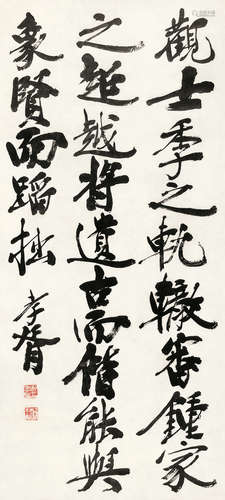 觀士季之軌轍審鍾家
之超越將遺古而偕能與
象賢而蹈拙
孝胥